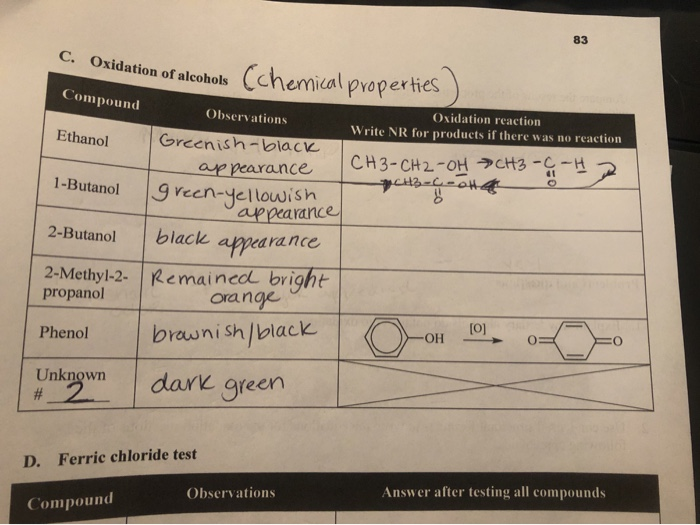 83
C. Oxidation of alcohols (Chemical properties)
Compound
Observations
Oxidation reaction
Write NR for products if there was no reaction
Ethanol
Greenish-black
appearance
CH3-CH2-OH → CH3-C-H
O
→ CH3-C-OH
O
1-Butanol
green-yellowish
appearance
2-Butanol
black appearance
2-Methyl-2-
propanol
Remained bright
orange
Phenol
brownish/black
-OH [O] O= =O
Unknown
# 2
dark green
D. Ferric chloride test
Compound
Observations
Answer after testing all compounds